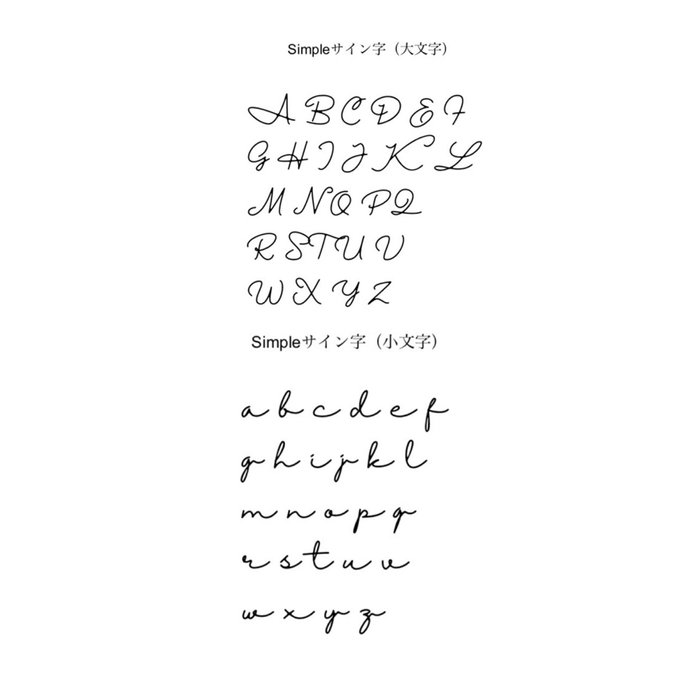 Simpleサイン字（大文字）
A B C D E F
G H I J K L
M N O P Q
R S T U V
W X Y Z
Simpleサイン字（小文字）
a b c d e f
g h i j k l
m n o p q
r s t u v
w x y z